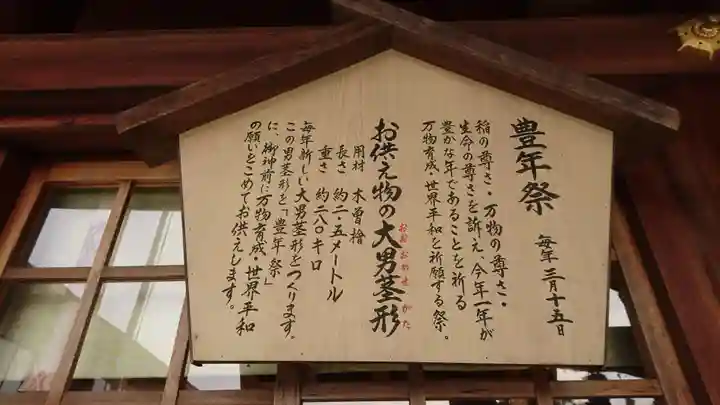 豊年祭 毎年 三月十五日
稲の尊さ・万物の尊さ・
生命の尊さを訴え、今年一年が
豊かな年であることを祈る
万物育成・世界平和を祈願する祭。
お供え物の大男茎形
おおおわせがた
用材 木曽檜
長さ 約二・五メートル
重さ 約二八〇キロ
毎年新しい大男茎形をつくります。
この男茎形を「豊年祭」
に、御神前に万物育成・世界平和
の願いをこめてお供えします。